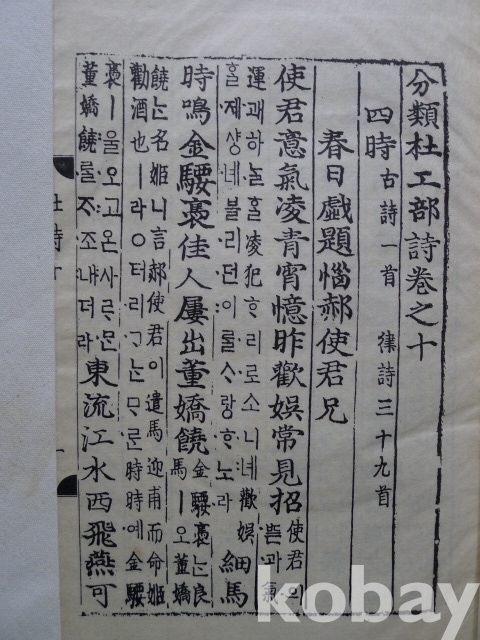 分類杜工部詩卷之十
四時 古詩一首 律詩三十九首
春日戲題惱郝使君兄
使君意氣凌青霄憶昨歡娛常見招 使君의
뜯과氣
運괘하ᄂᆞᆯᄒᆞᆯ凌犯ᄒᆞ리로소니녜歡娛
ᄒᆞᆯ제샹녜블리던이ᄅᆞᆯᄉᆞ랑ᄒᆞ노라 細馬
時鳴金騕褭佳人屢出董嬌饒 金騕褭ᄂᆞᆫ良
馬ㅣ오董嬌
饒ᄂᆞᆫ名姬니言郝使君이遣馬迎甫而命姬
勸酒也ㅣ라○터리ᄀᆞᄂᆞᆫᄆᆞᄅᆞᆫ時時예金騕
褭ㅣ울오고온사ᄅᆞᄆᆞᆫ
董嬌饒ᄅᆞᆯᄌᆞ조내더라 東流江水西飛燕可
kobay